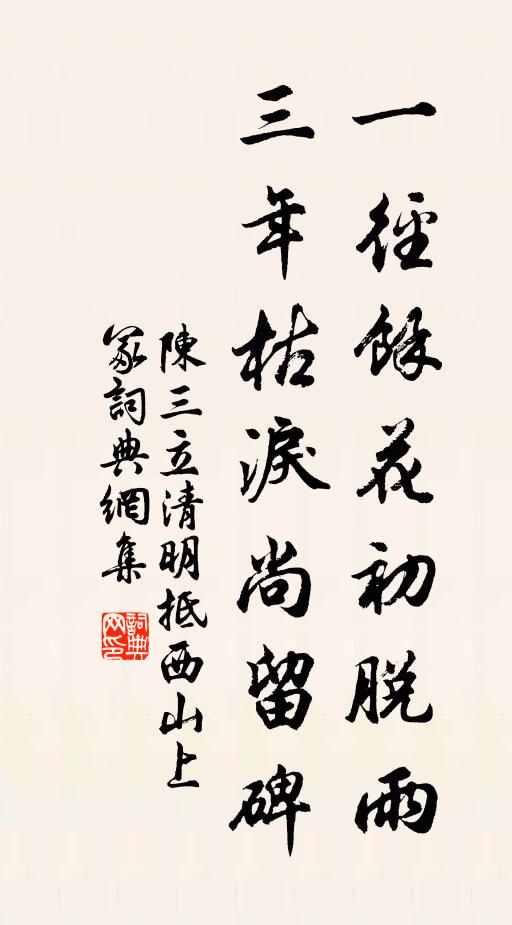 一徑餘花初脫雨
三年枯淚尚留碑
陳三立清明抵西山上
冢詞典網集
詞典
网印